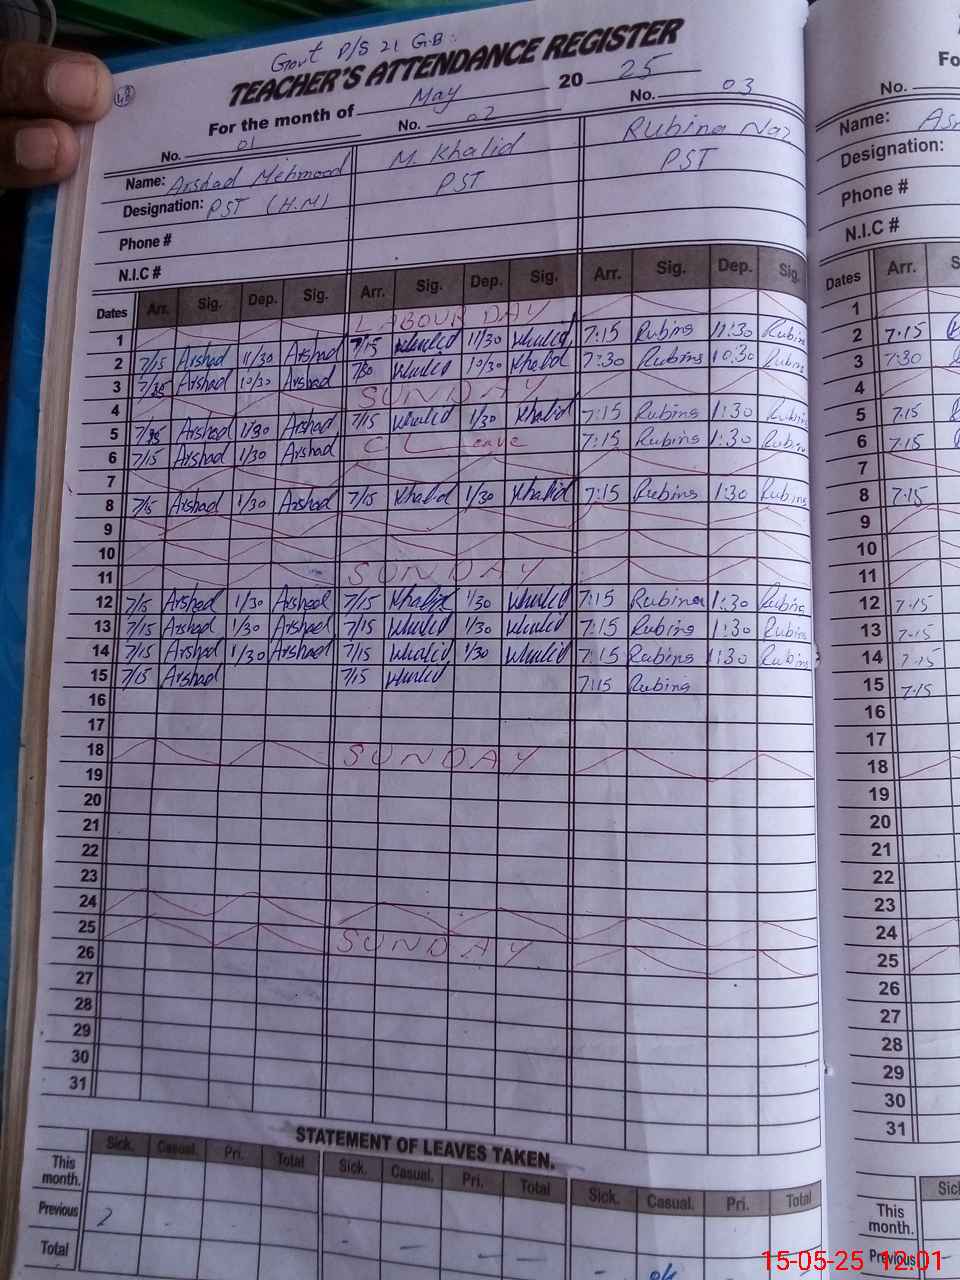 48
Govt P/S 21 G.B.
TEACHER'S ATTENDANCE REGISTER
For the month of May 20 25
No. 01 No. 02 No. 03
Name: Arshad Mehmood M. Khalid Rubina Naz
Designation: PST (H.M) PST PST
Phone #
N.I.C #
Dates Arr. Sig. Dep. Sig. Arr. Sig. Dep. Sig. Arr. Sig. Dep. Sig.
1 LABOUR DAY
2 7/15 Arshad 11/30 Arshad 7/15 Khalid 11/30 Khalid 7:15 Rubina 11:30 Rubin
3 Arshad 10/30 Arshad 7/30 Khalid 10/30 Khalid 7:30 Rubina 10:30 Rubin
4 SUNDAY
5 Arshad 1/30 Arshad 7/15 Khalid 1/30 Khalid 7:15 Rubina 1:30 Rubin
6 7/15 Arshad 1/30 Arshad C Leave 7:15 Rubina 1:30 Rubin
7
8 7/15 Arshad 1/30 Arshad 7/15 Khalid 1/30 Khalid 7:15 Rubina 1:30 Rubin
9
10
11 SUNDAY
12 7/15 Arshad 1/30 Arshad 7/15 Khalid 1/30 Khalid 7:15 Rubina 1:30 Rubina
13 7/15 Arshad 1/30 Arshad 7/15 Khalid 1/30 Khalid 7:15 Rubina 1:30 Rubin
14 7/15 Arshad 1/30 Arshad 7/15 Khalid 1/30 Khalid 7:15 Rubina 1:30 Rubin
15 7/15 Arshad 7/15 Khalid 7:15 Rubina
16
17
18 SUNDAY
19
20
21
22
23
24
25 SUNDAY
26
27
28
29
30
31
STATEMENT OF LEAVES TAKEN.
Sick. Casual. Pri. Total Sick. Casual. Pri. Total Sick. Casual. Pri. Total
This month.
Previous 2 - - - - -
Total - - - - ok
Fo
No.
Name: Asm
Designation:
Phone #
N.I.C #
Dates Arr. S
1
2 7:15
3 7:30
5 7:15
6 7:15
7
8 7:15
9
10
11
12 7:15
13 7:15
14 7:15
15 7:15
16
17
18
19
20
21
22
23
24
25
26
27
28
29
30
31
Sic
This month.
Previous
15-05-25 12:01